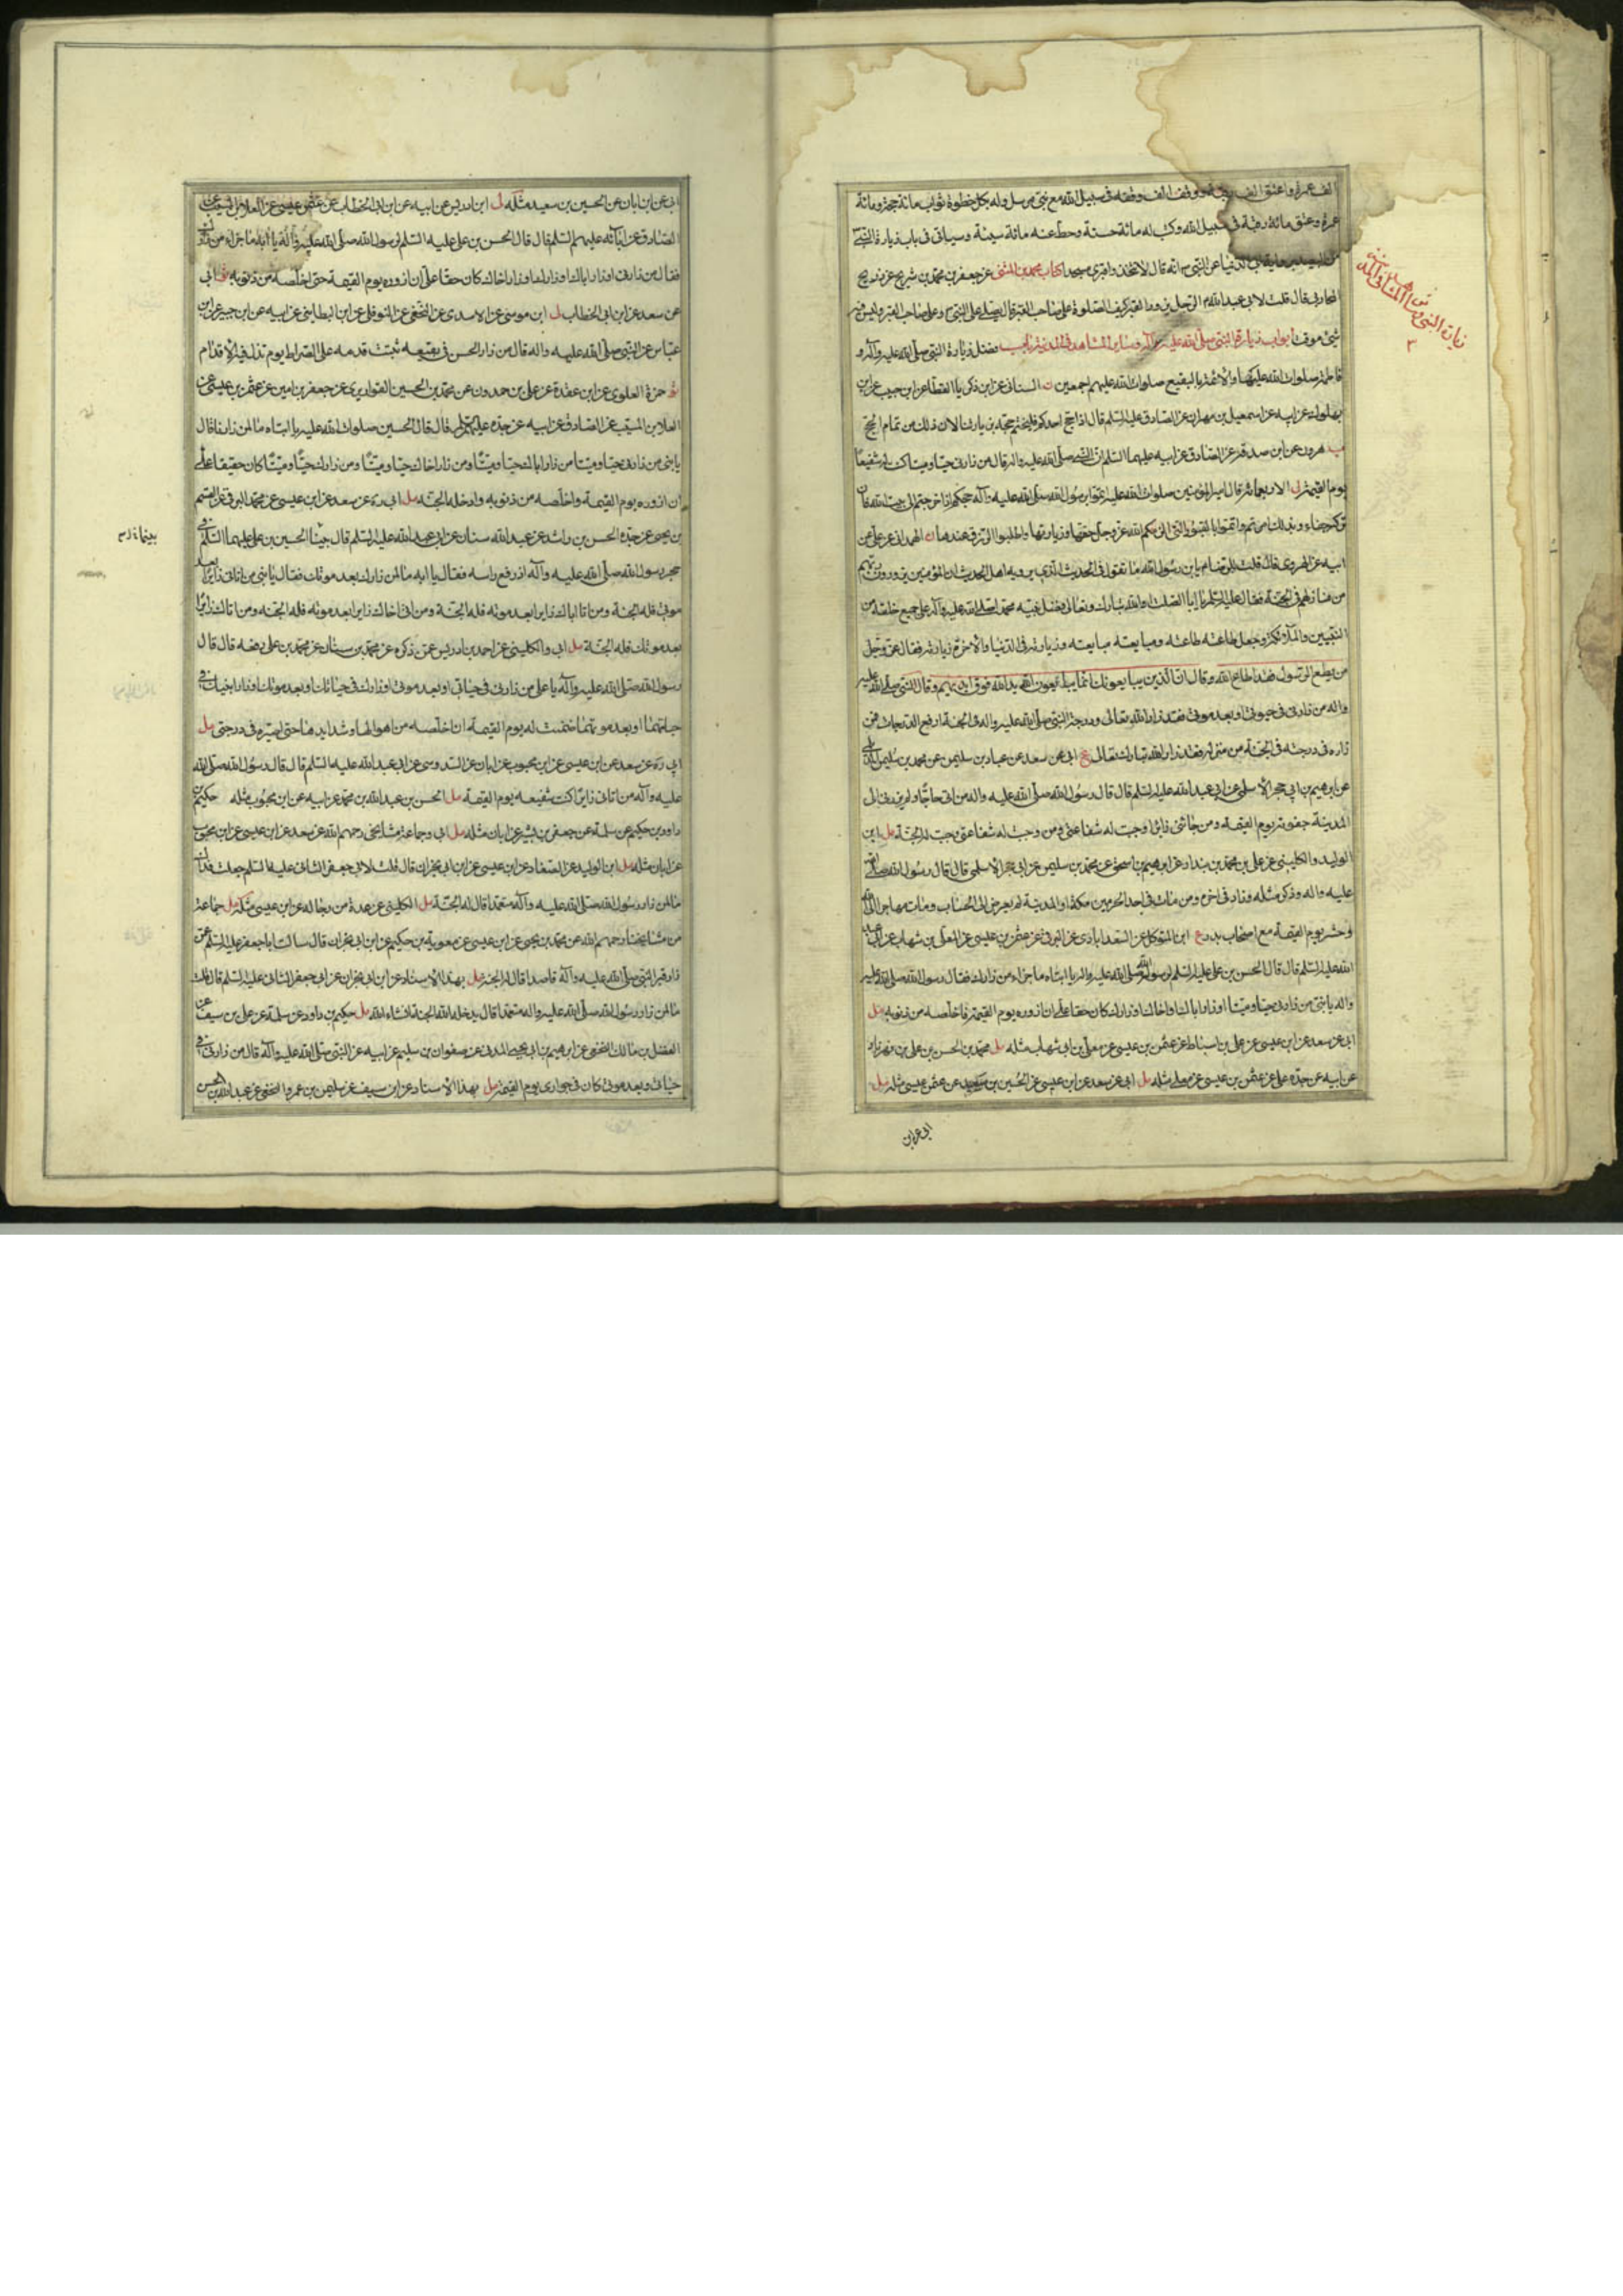 عمرة وعتق مائة رقبة فى سبيل الله وكتب له مائة حسنة وحط عنه مائة سيئة وسياتى فى باب زيارة النبى
عن النبى انه قال لا تتخذوا قبرى مسجدا كتاب محمد بن المثنى عن جعفر بن محمد بن شريح عن ذريح
المحاربى قال قلت لابى عبد الله الرجل
شئ موقت ابواب زيارة النبى صلى الله عليه وآله وساير المشاهد فى المدينة باب فضل زيارة النبى صلى الله عليه وآله و
فاطمة صلوات الله عليها والائمة بالبقيع صلوات الله عليهم اجمعين ن السنانى عن ابن زكريا القطان عن ابن حبيب عن ابن
بهلول عن ابيه عن اسمعيل بن مهران عن الصادق عليه السلم قال اذا حج احدكم فليختم حجه بزيارتنا لان ذلك من تمام الحج
ب هرون عن ابن صدقة عن الصادق عن ابيه عليهما السلم ان النبى صلى الله عليه واله قال من زارنى حيا وميتا كنت له شفيعا
يوم القيمة ل الاربعمائة قال امير المؤمنين صلوات الله عليه اتموا برسول الله صلى الله عليه وآله حجكم اذا خرجتم الى بيت الله فان
تركه جفاء وبذلك امرتم واتموا بالقبور التى الزمكم الله عز وجل حقها وزيارتها واطلبوا الرزق عندها ن الهمدانى عن على عن
ابيه عن الهروى قال قلت للرضا يا بن رسول الله ما تقول فى الحديث الذى يرويه اهل الحديث ان المؤمنين يزورون ربهم
من منازلهم فى الجنة فقال عليه السلم يا ابا الصلت ان الله تبارك وتعالى فضل نبيه محمدا صلى الله عليه وآله على جميع خلقه من
النبيين والملائكة وجعل طاعته طاعته ومبايعته مبايعته وزيارته فى الدنيا والاخرة زيارته فقال عز وجل
من يطع الرسول فقد اطاع الله وقال ان الذين يبايعونك انما يبايعون الله يد الله فوق ايديهم وقال النبى صلى الله عليه
واله من زارنى فى حيوتى او بعد موتى فقد زار الله تعالى ودرجة النبى صلى الله عليه واله فى الجنة ارفع الدرجات فمن
زاره فى درجته فى الجنة من منزله فقد زار الله تبارك وتعالى ع ابى عن سعد عن عباد بن سليمن عن محمد بن سليمن الديلمى
عن ابرهيم بن ابى حجر الاسلمى عن ابى عبد الله عليه السلم قال قال رسول الله صلى الله عليه واله من اتى حاجا ولم يزرنى الى
المدينة جفوته يوم القيمة ومن جائنى زائرا وجبت له شفاعتى ومن وجبت له شفاعتى وجبت له الجنة مل ابن
الوليد والكلينى عن على بن محمد بن بندار عن ابرهيم بن اسحق عن محمد بن سليمن عن ابى حجر الاسلمى قال قال رسول الله صلى الله
عليه واله وذكر مثله وزاد فى اخره ومن مات فى احد الحرمين مكة او المدينة لم يعرض الى الحساب ومات مهاجرا الى الله
وحشر يوم القيمة مع اصحاب بدر ع ابن المتوكل عن السعدابادى عن البرقى عن عثمن بن عيسى عن المعلى بن شهاب عن ابى عبد
الله عليه السلم قال قال الحسن بن على عليه السلم لرسول الله صلى الله عليه واله يا ابتاه ما جزاء من زارك فقال رسول الله صلى الله عليه
واله يا بنى من زارنى حيا وميتا او زار اباك او اخاك او زارك كان حقا على ان ازوره يوم القيمة فاخلصه من ذنوبه مل
ابى عن سعد عن ابن عيسى عن على بن اسباط عن عثمن بن عيسى عن معلى بن ابى شهاب مثله مل محمد بن الحسن بن على بن مهزيار
عن ابيه عن جده على عن عثمن بن عيسى عن معلى مثله مل ابى عن سعد عن ابن عيسى عن الحسين بن سعيد عن عثمن عيسى مثله مل
ابى عن ابن
ابى عن ابن ابان عن الحسين بن سعيد مثله ل ابن ادريس عن ابيه عن ابن ابى الخطاب عن عثمن عيسى عن العلا بن المسيب عن
الصادق عن ابائه عليهم السلم قال قال الحسن بن على عليه السلم لرسول الله صلى الله عليه وآله يا ابه ما جزاء من زارك
فقال من زارنى او زار اباك او زارك او زار اخاك كان حقا على ان ازوره يوم القيمة حتى اخلصه من ذنوبه ابى
عن سعد عن ابن ابى الخطاب ل ابن موسى عن الاسدى عن النخعى عن النوفلى عن ابن البطاينى عن ابيه عن ابن جبير عن ابن
عباس عن النبى صلى الله عليه واله قال من زار الحسن فى بقيعه ثبتت قدمه على الصراط يوم تزل فيه الاقدام
حمزة العلوى عن ابن عقدة عن على بن حمدون عن محمد بن الحسين القواريرى عن جعفر بن امين عن عثمن بن عيسى عن
العلا بن المسيب عن الصادق عن ابيه عن جده عليهم السلم قال قال الحسين صلوات الله عليه يا ابتاه ما لمن زارنا قال
يا بنى من زارنى حيا وميتا ومن زار اباك حيا وميتا ومن زار اخاك حيا وميتا ومن زارك حيا وميتا كان حقيقا على
ان ازوره يوم القيمة واخلصه من ذنوبه وادخله الجنة مل ابى ره عن سعد عن ابن عيسى عن محمد البرقى عن القسم
بن يحيى عن جده الحسن بن راشد عن عبد الله سنان عن ابى عبد الله عليه السلم قال بينا الحسين بن على عليهما السلم فى
حجر رسول الله صلى الله عليه وآله اذ رفع راسه فقال يا ابه ما لمن زارك بعد موتك فقال يا بنى من اتانى زايرا بعد
موتى فله الجنة ومن اتا اباك زايرا بعد موته فله الجنة ومن اتى اخاك زايرا بعد موته فله الجنة ومن اتاك زايرا
بعد موتك فله الجنة مل ابى والكلينى عن احمد بن ادريس عمن ذكره عن محمد بن سنان عن محمد بن على رفعه قال قال
رسول الله صلى الله عليه وآله يا على من زارنى فى حياتى او بعد موتى او زارك فى حياتك او بعد موتك او زار ابنيك فى
حياتهما او بعد موتهما ضمنت له يوم القيمة ان اخلصه من اهوالها وشدايدها حتى اصيره فى درجتى مل
ابى ره عن سعد عن ابن عيسى عن ابن محبوب عن ابان عن السدوسى عن ابى عبد الله عليه السلم قال قال رسول الله صلى الله
عليه وآله من اتانى زايرا كنت شفيعه يوم القيمة مل الحسن بن عبد الله بن محمد عن ابيه عن ابن محبوب مثله حكيم بن
داود بن حكيم عن سلمة عن جعفر بن بشير عن ابان مثله مل ابى وجماعة مشايخى رحمهم الله عن سعد عن ابن عيسى عن ابن محبوب
عن ابان مثله مل ابن الوليد عن الصفار عن ابن عيسى عن ابن ابى نجران قال قلت لابى جعفر الثانى عليه السلم جعلت فداك
ما لمن زار رسول الله صلى الله عليه وآله متعمدا قال له الجنة مل الكلينى عن عدة من رجاله عن ابن عيسى مثله مل جماعة
من مشايخنا رحمهم الله عن محمد بن يحيى عن ابن عيسى عن معوية بن حكيم عن ابن ابى نجران قال سالت ابا جعفر عليه السلم عمن
زار قبر النبى صلى الله عليه وآله قاصدا قال له الجنة مل بهذا الاسناد عن ابن ابى نجران عن ابى جعفر الثانى عليه السلم قال قلت
ما لمن زار رسول الله صلى الله عليه واله متعمدا قال يدخله الله الجنة انشاء الله مل حكيم بن داود عن سلمة عن على بن سيف عن
الفضل بن مالك النخعى عن ابرهيم بن ابى يحيى المدنى عن صفوان بن سليم عن ابيه عن النبى صلى الله عليه وآله قال من زارنى فى
حياتى وبعد موتى كان فى جوارى يوم القيمة مل بهذا الاسناد عن ابن سيف عن سليمن بن عمر والنخعى عن عبد الله بن الحسن